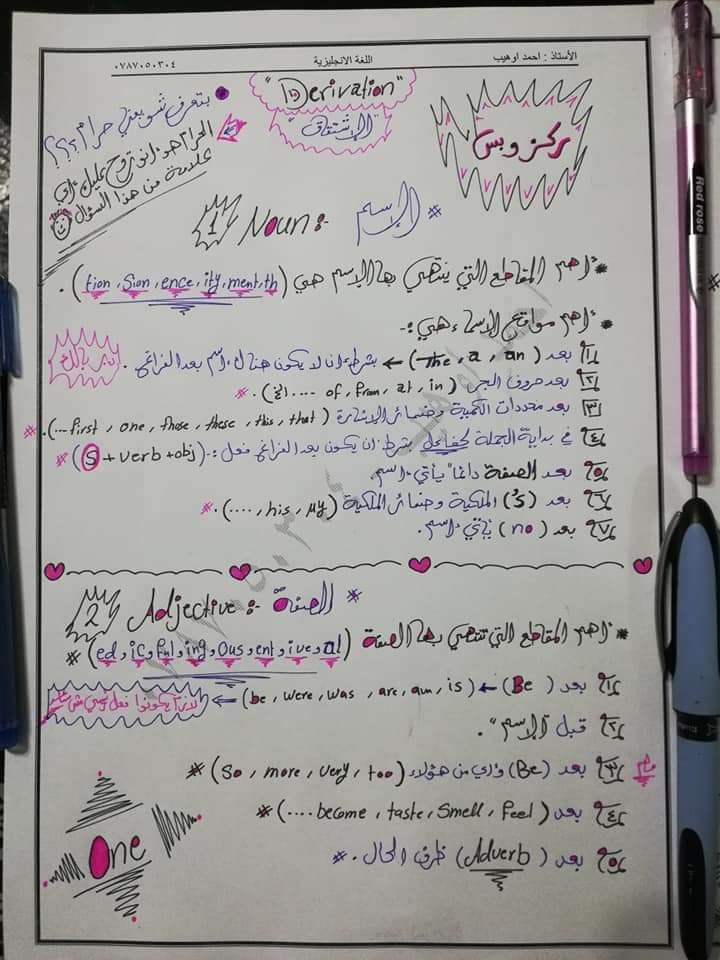 الأستاذ : احمد اوهيب اللغة الانجليزية ٠٧٨٧٠٥٠٣٠٤
"Derivation"
الإشتقاق
ركز وبس
* بتعرف شو يعني حرام ؟؟؟
الحرام هو انو تروح عليك اي
علامة من هذا السؤال
1 Noun :- الإسم *
* اهم المقاطع التي ينتهي بها الإسم هي (tion , sion , ence , ity , ment , th) .
* اهم مواقع الاسماء هي :-
١ بعد (The , a , an) ← بشرط ان لا يكون هنالك اسم بعد الفراغ . دير بالك
٢ بعد حروف الجر (of , from , at , in .... الخ) . *
٣ بعد محددات الكمية وضمائر الإشارة (... first , one , those , these , this , that) . *
٤ في بداية الجملة كفاعل بشرط ان يكون بعد الفراغ فعل :- (S + verb + obj) *
٥ بعد الصفة دائما يأتي اسم .
٦ بعد (s') الملكية وضمائر الملكية (.... , his , my) . *
٧ بعد (no) يأتي اسم .
2 Adjective :- الصفة *
* اهم المقاطع التي تنتهي بها الصفة (ed , ic , ful , ing , ous , ent , ive , al) *
١ بعد (Be) ← (be , were , was , are , am , is) ←
٢ قبل "الإسم" .
٣ بعد (Be) و اي من هؤلاء (so , more , very , too) * مهم
٤ بعد (.... become , taste , smell , feel) *
٥ بعد (Adverb) ظرف الحال . *
One
Red rose